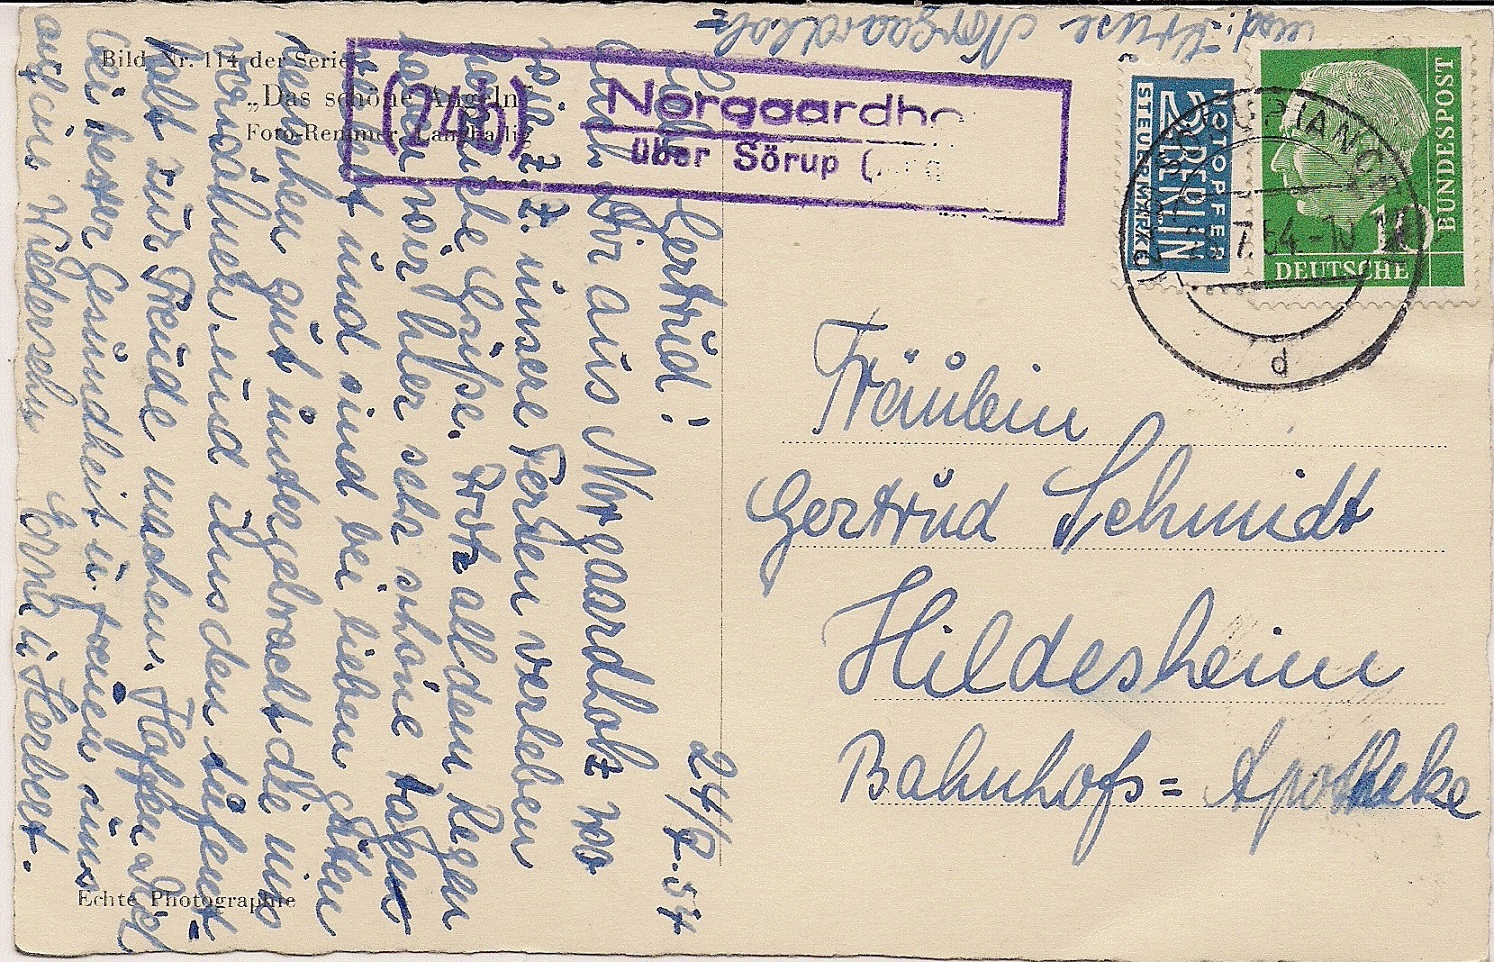 Bild Nr. 114 der Serie
„Das schöne Angeln“
Foto-Remmer Langballig
(24b) Norgaardho
über Sörup (
NOTOPFER
2 BERLIN
STEUERMARKE
DEUTSCHE
BUNDESPOST
7.54.-10
d
Kruse Norgaardholz
24/7.54
Liebe Gertrud!
Auch Dir aus Norgaardholz wo
wir z. Z. unsere Ferien verleben
herzliche Grüße. Trotz all dem Regen
haben wir hier sehr schöne Tagen
verlebt und sind bei lieben guten
Menschen gut untergebracht die uns
verwöhnen und uns den Aufent-
halt zur Freude machen. Hoffen Dich
bei bester Gesundheit u. freuen uns
auf ein Wiedersehn Erna u. Herbert.
Fräulein
Gertrud Schmidt
Hildesheim
Bahnhofs= Apotheke
Echte Photographie